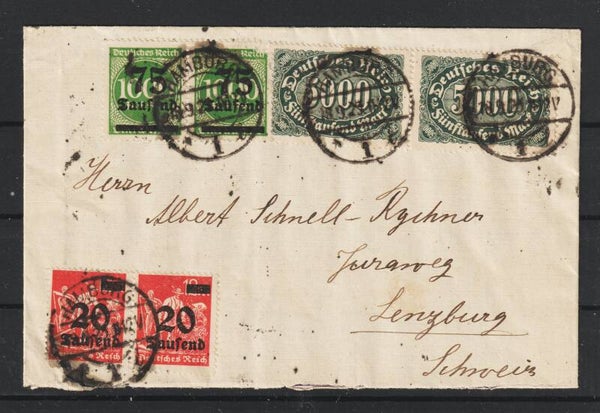 Deutsches Reich Deutsches Reich Deutsches Reich Deutsches Reich
100 75 Tausend 100 75 Tausend 5000 5000
Fünftausend Mark Fünftausend Mark
HAMBURG HAMBURG HAMBURG
1 1 1
Herrn
Albert Schnell-Rychner
Juraweg
Lenzburg
Schweiz
HAMBURG
20 20
Tausend Tausend
Deutsches Reich
1